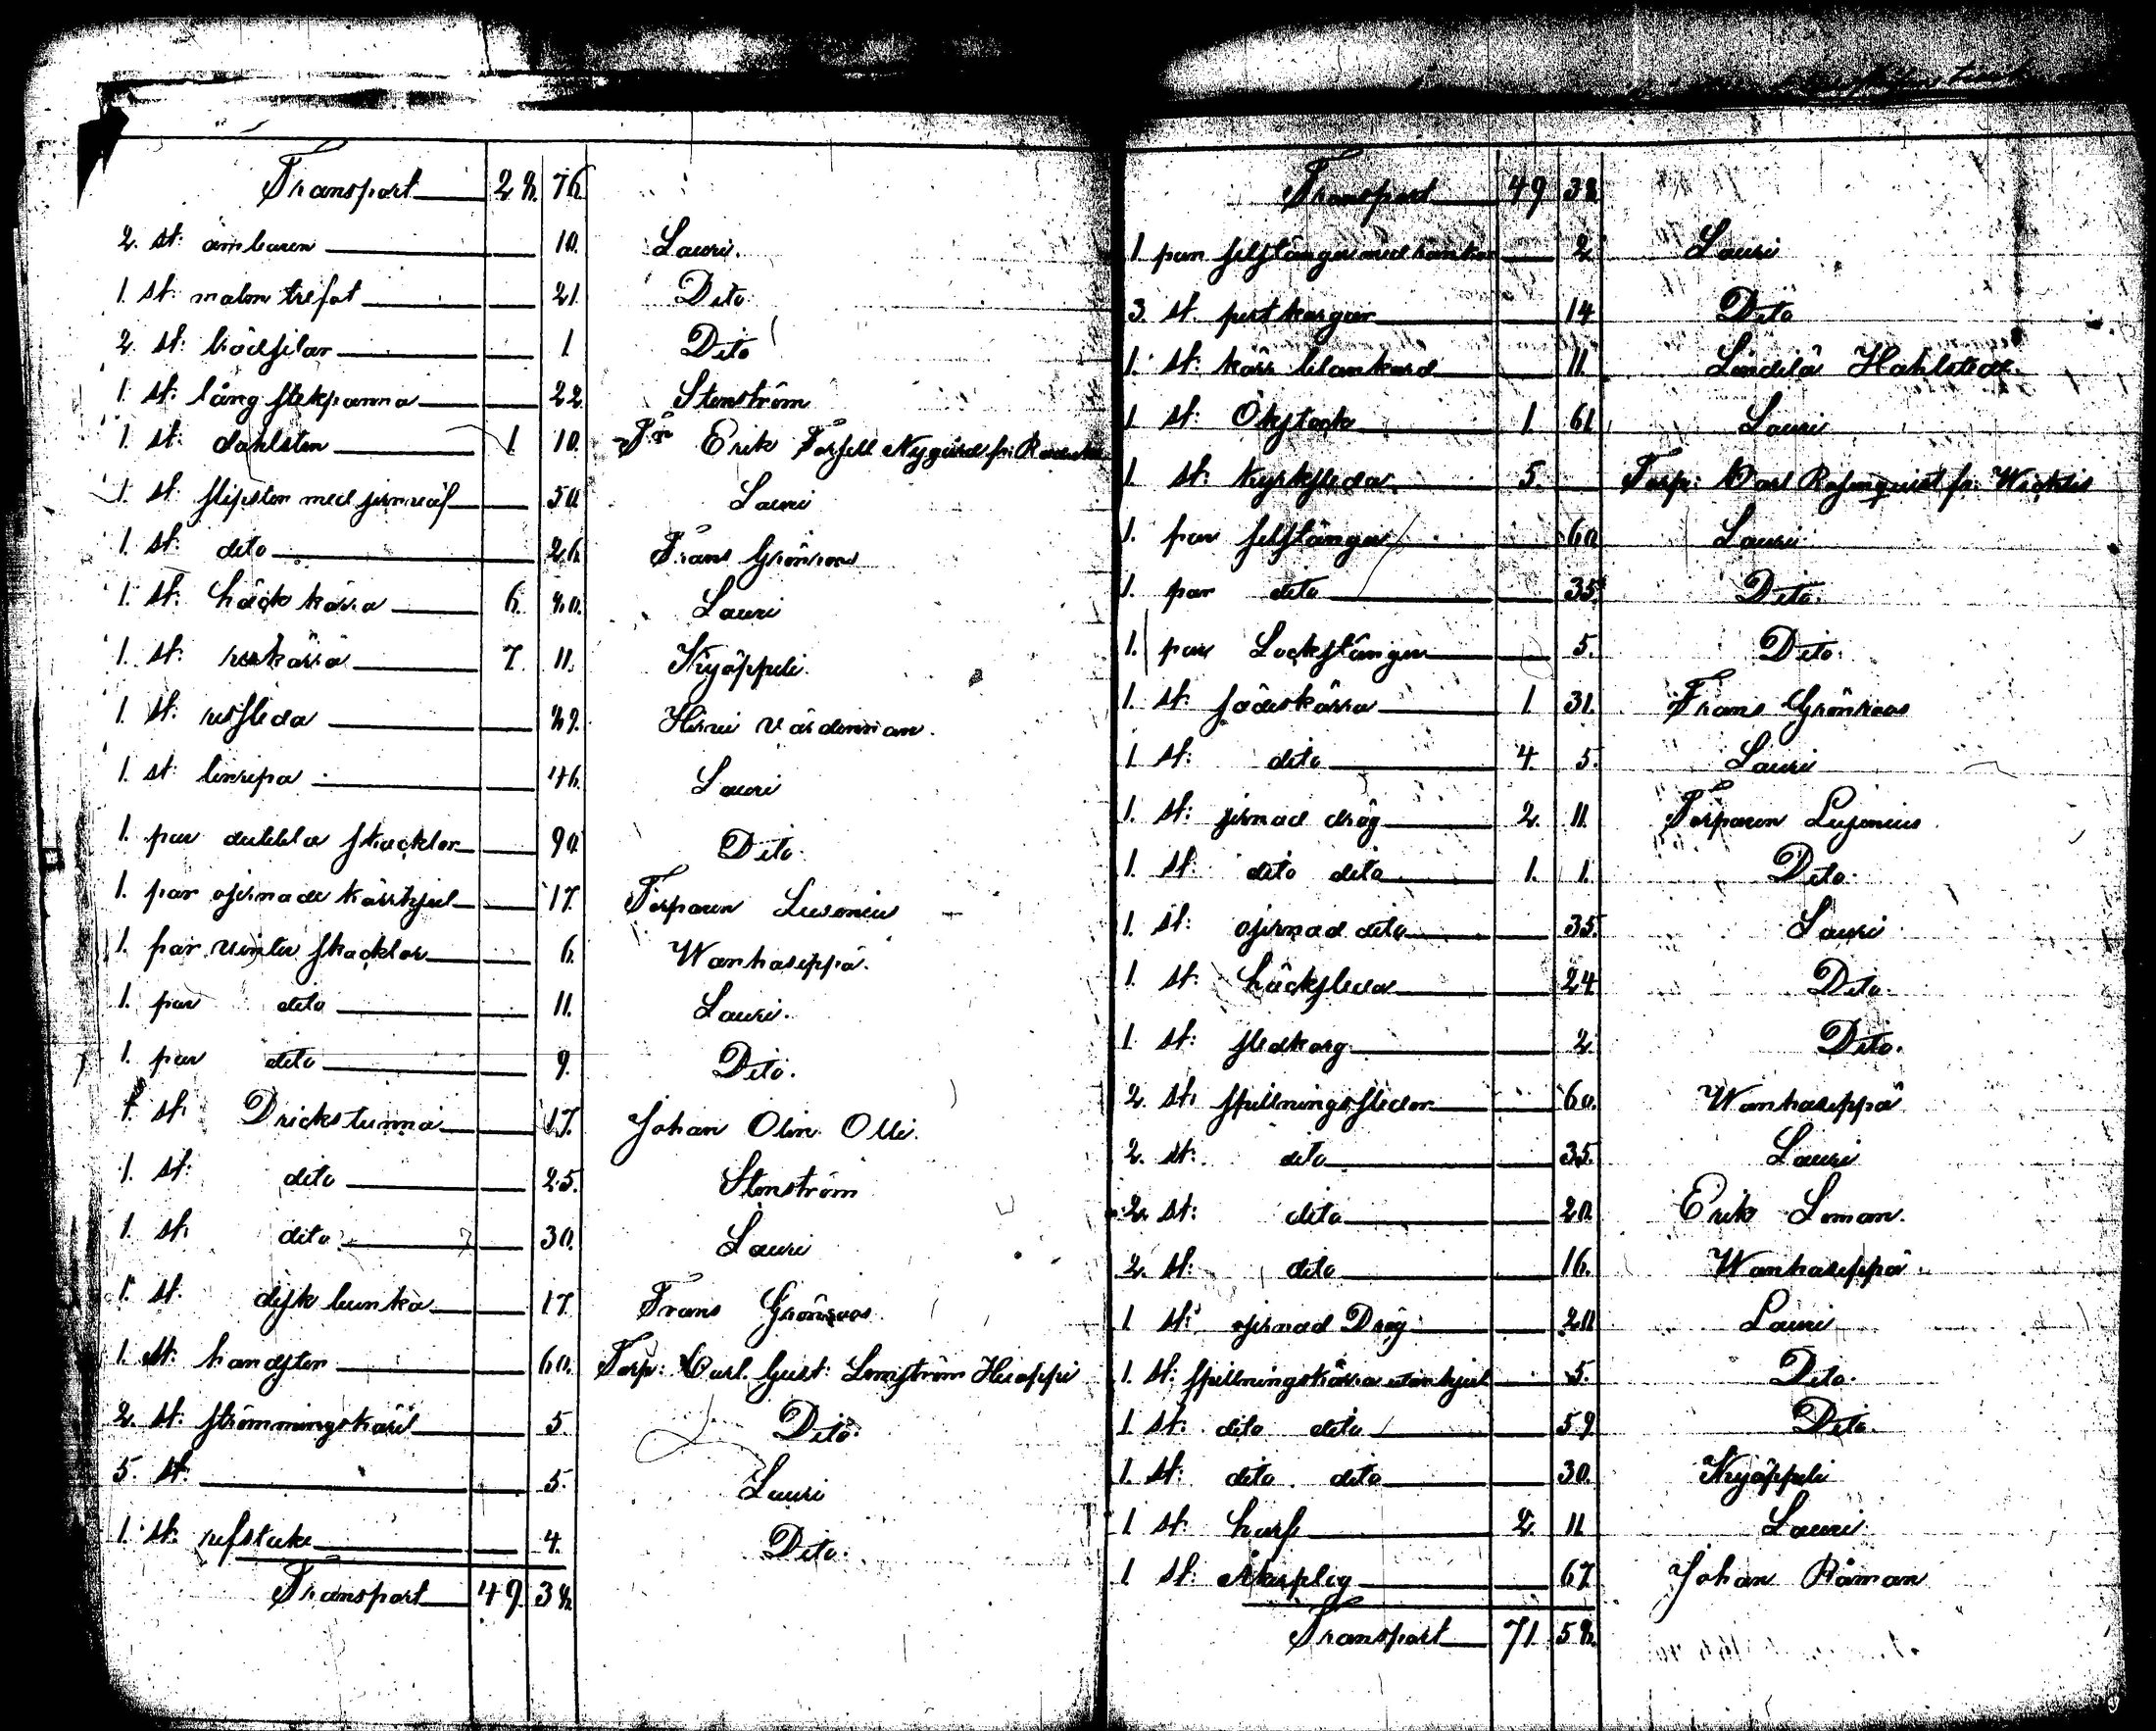 Transport 28. 76.
2. st: ämbaren 10. Lauri.
1. st: malm trefot 21. Dito.
2. st: 1 Dito
1. st: lång stekpanna 22. Stenström
1. st: dahlsten 1 10. Erik Nygård fr:
1. st: slipsten med 50. Lauri
1. st: dito 26. Frans Grönroos
1. st: häck kärra 6. 80. Lauri
1. st: reskärra 7. 11. Kyöppeli.
1. st: ressleda 89. Hirvi värdinnan.
1. st: linrepa 46. Lauri
1. par dubbla skacklor 90. Dito.
1. par ojernade kärrhjul 17. Torparen
1. par vinter skacklor 6. Wanhaseppä.
1. par dito 11. Lauri.
1. par dito 9. Dito.
1. st: Drickstunna 17. Johan Olin Olli.
1. st: dito 25. Stenström
1. st: dito 30. Lauri
1. st: disk bunka 17. Frans Grönroos
1. st: handsten 60. Torp: Carl Gust: Lönnström
2. st: strömmingskäril 5. Dito.
5. st: 5. Lauri
1. st: 4. Dito.
Transport 49. 38.
Transport 49 38.
1 par selstänger med 2 Lauri
3. st. 14 Dito
1. st: kärr 11. Hahlstedt.
1. st: Okstock 1. 61. Lauri
1. st: kyrksleda 5. Torp: Carl Rosenquist fr:
1. par selstänger 60 Lauri
1. par dito 35. Dito.
1. par Lockstänger 5. Dito.
1. st: födoskärra 1 31. Frans Grönroos
1 st: dito 4. 5. Lauri
1. st: jernad drög 2. 11. Torparen
1. st: dito dito 1. 1. Dito.
1. st: ojernad dito 35. Lauri
1. st: häcksleda 24 Dito.
1. st: sledkorg 2. Dito.
2. st: spillningssledor 60. Wanhaseppä
2. st: dito 35. Lauri
2. st: dito 20. Erik Loman.
2. st: dito 16. Wanhaseppä.
1 st: ojernad Drög 20 Lauri
1. st: spillningskärra utan hjul 5. Dito.
1 st: dito dito 59 Dito.
1. st: dito dito 30. Kyöppeli
1 st: harf 2. 11 Lauri.
1 st: Åkerplog 67. Johan Råman
Transport 71. 58.